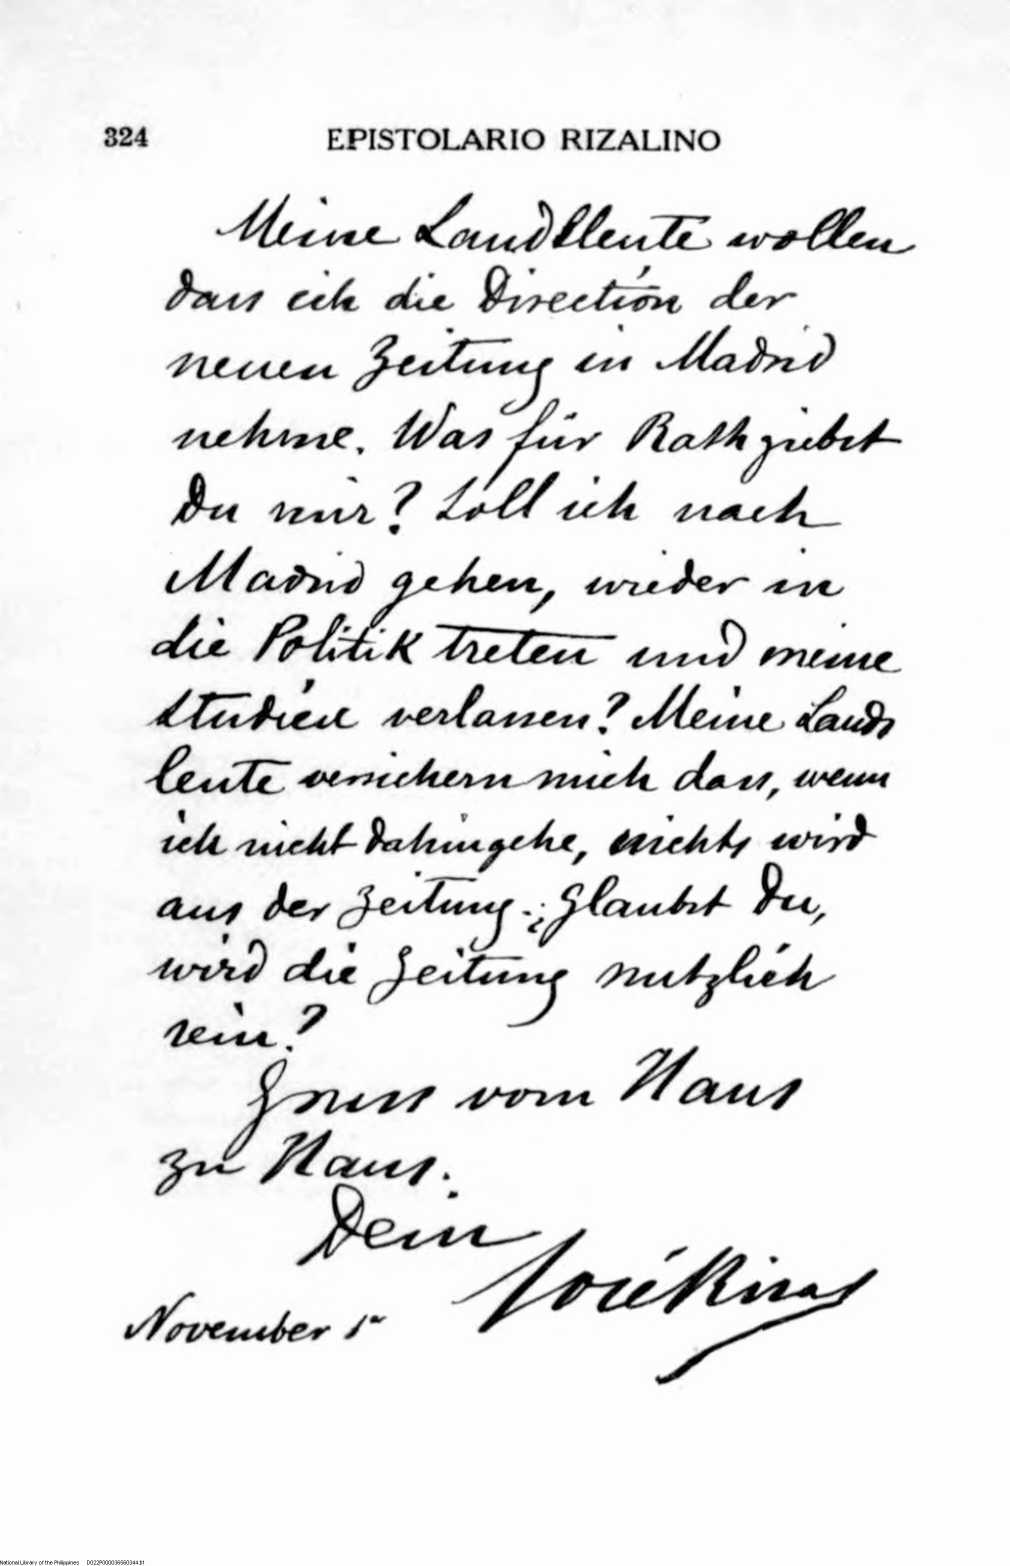 324 EPISTOLARIO RIZALINO
Meine Landsleute wollen
dass ich die Direction der
neuen Zeitung in Madrid
nehme. Was für Rath giebst
Du mir? Soll ich nach
Madrid gehen, wieder in
die Politik treten und meine
Studien verlassen? Meine Lands
leute versichern mich dass, wenn
ich nicht dahingehe, nichts wird
aus der Zeitung. ¿Glaubst Du,
wird die Zeitung nutzlich
sein?
Gruss vom Haus
zu Haus.
Dein
José Rizal
November 1º
National Library of the Philippines